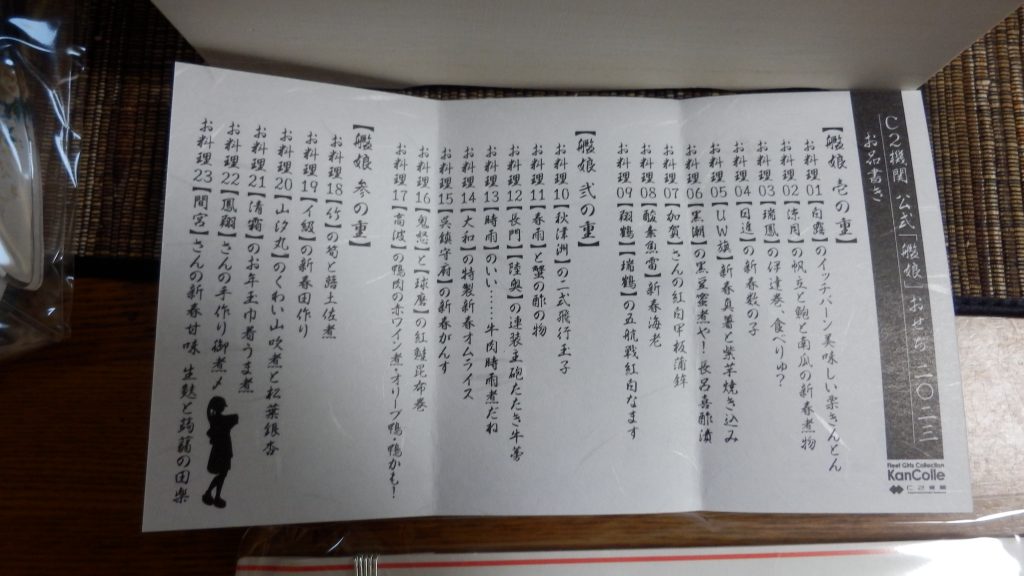 C2機関 公式「艦娘」おせち 二〇二三
お品書き
Fleet Girls Collection
KanColle
C2機関
【艦娘 壱の重】
お料理01【白露】のイッチバーン美味しい栗きんとん
お料理02【涼月】の帆立と鮑と南瓜の新春煮物
お料理03【瑞鳳】の伊達巻、食べりゅ?
お料理04【日進】の新春数の子
お料理05【UW旗】新春真薯と紫芋焼き込み
お料理06【黒潮】の黒豆蜜煮や!長呂喜酢漬
お料理07【加賀】さんの紅白甲板蒲鉾
お料理08【酸素魚雷】新春海老
お料理09【翔鶴】【瑞鶴】の五航戦紅白なます
【艦娘 弐の重】
お料理10【秋津洲】の二式飛行玉子
お料理11【春雨】と蟹の酢の物
お料理12【長門】【陸奥】の連装主砲たたき牛蒡
お料理13【時雨のいい……牛肉時雨煮だね
お料理14【大和】の特製新春オムライス
お料理15【呉鎮守府】の新春がんす
お料理16【鬼怒】と【球磨】の紅鮭昆布巻
お料理17【高波】の鴨肉の赤ワイン煮・オリーブ鴨・鴨かも!
【艦娘 参の重】
お料理18【竹】の筍と蕗土佐煮
お料理19【イ級】の新春田作り
お料理20【山汐丸】のくわい山吹煮と松葉銀杏
お料理21【清霜】のお年玉巾着うま煮
お料理22【鳳翔】さんの手作り御煮〆
お料理23【間宮】さんの新春甘味 生麩と蒟蒻の田楽